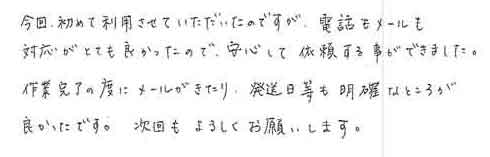 今回、初めて利用させていただいたのですが、電話もメールも
対応がとても良かったので、安心して依頼する事ができました。
作業完了の度にメールがきたり、発送日等も明確なところが
良かったです。次回もよろしくお願いします。